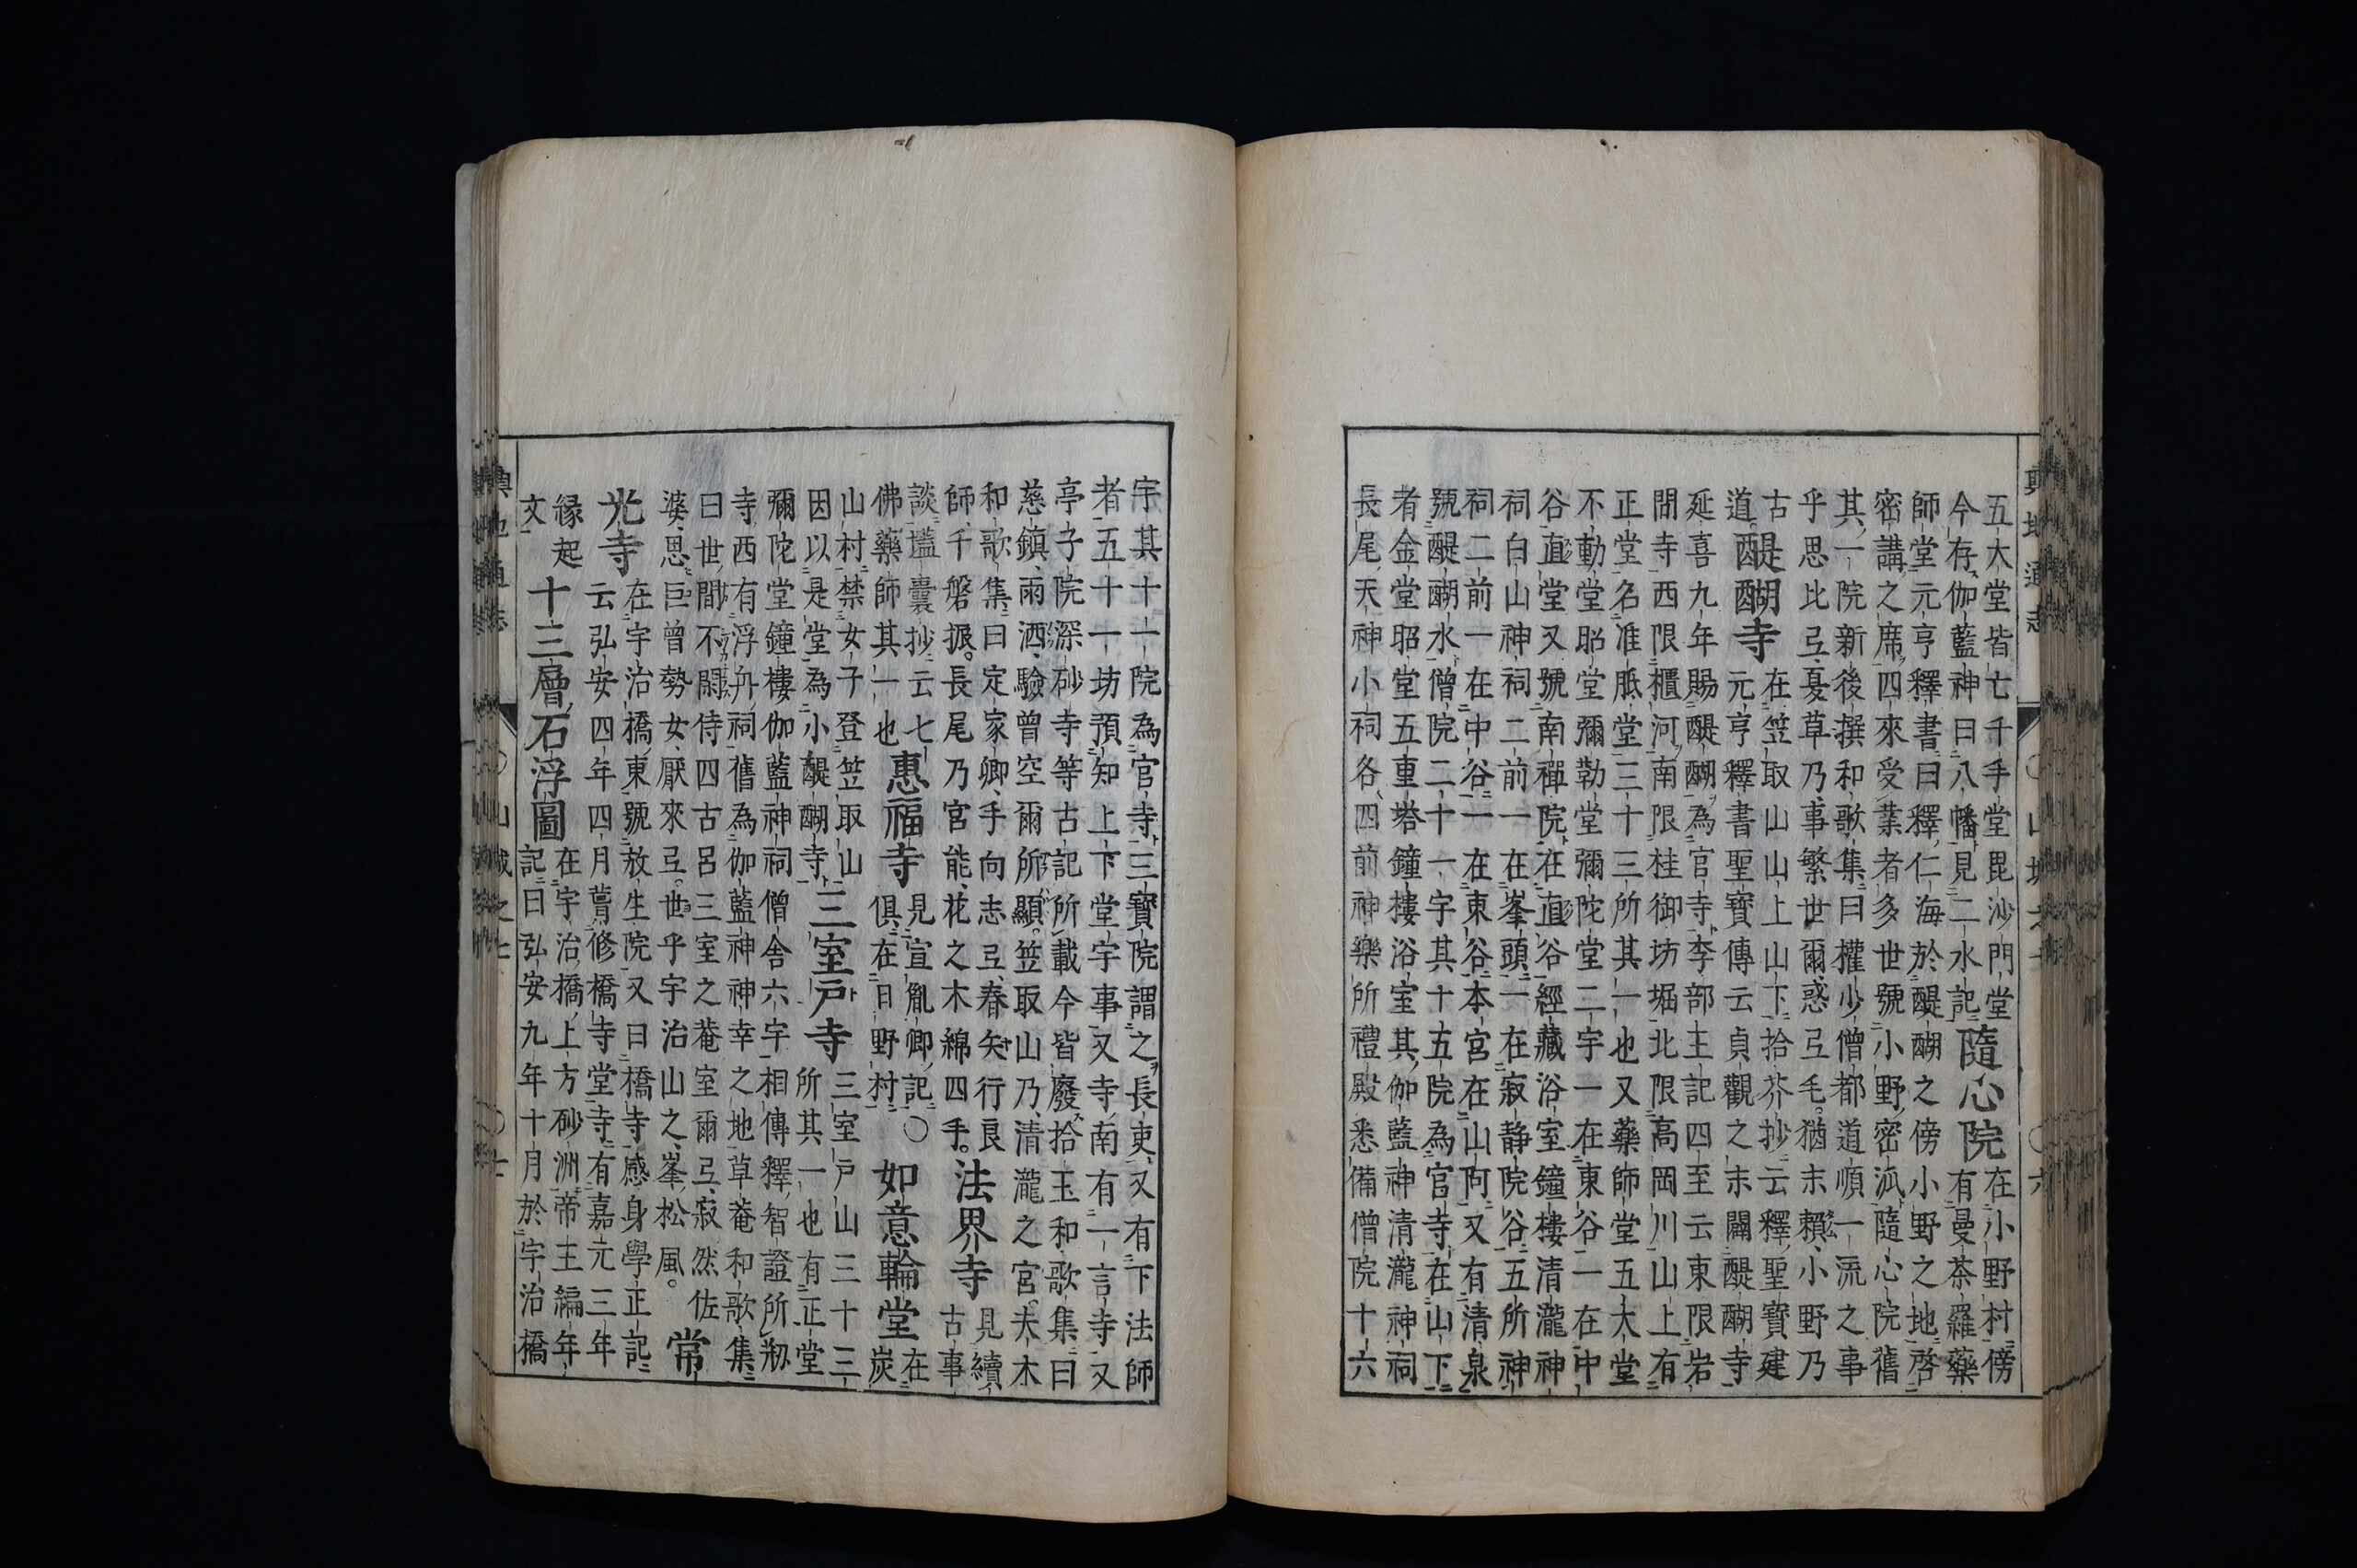 五大堂皆亡千手堂毘沙門堂
今存伽藍神曰八幡見二水記隨心院在小野村傍
有曼荼羅藥
師堂元亨釋書曰釋仁海於醍醐之傍小野之地啓
密講之席四來受業者多世號小野密流隨心院舊
其一院新後撰和歌集曰權少僧都道順一流之事
乎思比弖憂草乃事繁世爾惑弖毛猶末賴小野乃
古道醍醐寺在笠取山山上山下拾芥抄云釋聖寶建
元亨釋書聖寶傳云貞觀之末闢醍醐寺
延喜九年賜醍醐為官寺李部王記四至云東限岩
間寺西限櫃河南限桂御坊堀北限高岡川山上有
正堂名准胝堂三十三所其一也又藥師堂五大堂
不動堂昭堂彌勒堂彌陀堂二宇一在東谷一在中
谷直堂又號南禪院在直谷經藏浴室鐘樓清瀧神
祠白山神祠二前一在峯頭一在寂静院谷五所神
祠二前一在中谷一在東谷本宮在山阿又有清泉
號醍醐水僧院二十一宇其十五院為官寺在山下
者金堂昭堂五重塔鐘樓浴室其伽藍神清瀧神祠
長尾天神小祠各四前神樂所禮殿悉備僧院十六
宇其十一院為官寺三寶院謂之長吏又有下法師
者五十一坊預知上下堂宇事又寺南有一言寺又
亭子院深砂寺等古記所載今皆廢拾玉和歌集曰
慈鎮雨洒驗曾空爾所顯笠取山乃清瀧之宮夫木
和歌集曰定家卿手向志弖春矢行良
師千磐振長尾乃宮能花之木綿四手法界寺見續
古事
談壒囊抄云七
佛藥師其一也惠福寺見宣胤卿記〇
俱在日野村如意輪堂在
炭
山村禁女子登笠取山
因以是堂為小醍醐寺三室戸寺三室戸山三十三
所其一也有正堂
彌陀堂鐘樓伽藍神祠僧舎六宇相傳釋智證所剏
寺西有浮舟祠舊為伽藍神神幸之地草菴和歌集
曰世間不閑侍四古呂三室之菴室爾弖寂然佐
婆思巨曾勢女厭來弖世乎宇治山之峯松風常
光寺在宇治橋東號放生院又曰橋寺感身學正記
云弘安四年四月蕢修橋寺堂寺有嘉元三年
縁起
文十三層石浮圖在宇治橋上方砂洲帝王編年
記曰弘安九年十月於宇治橋
輿地通志 〇山城之七 〇六
輿地通志 〇山城之七 〇七